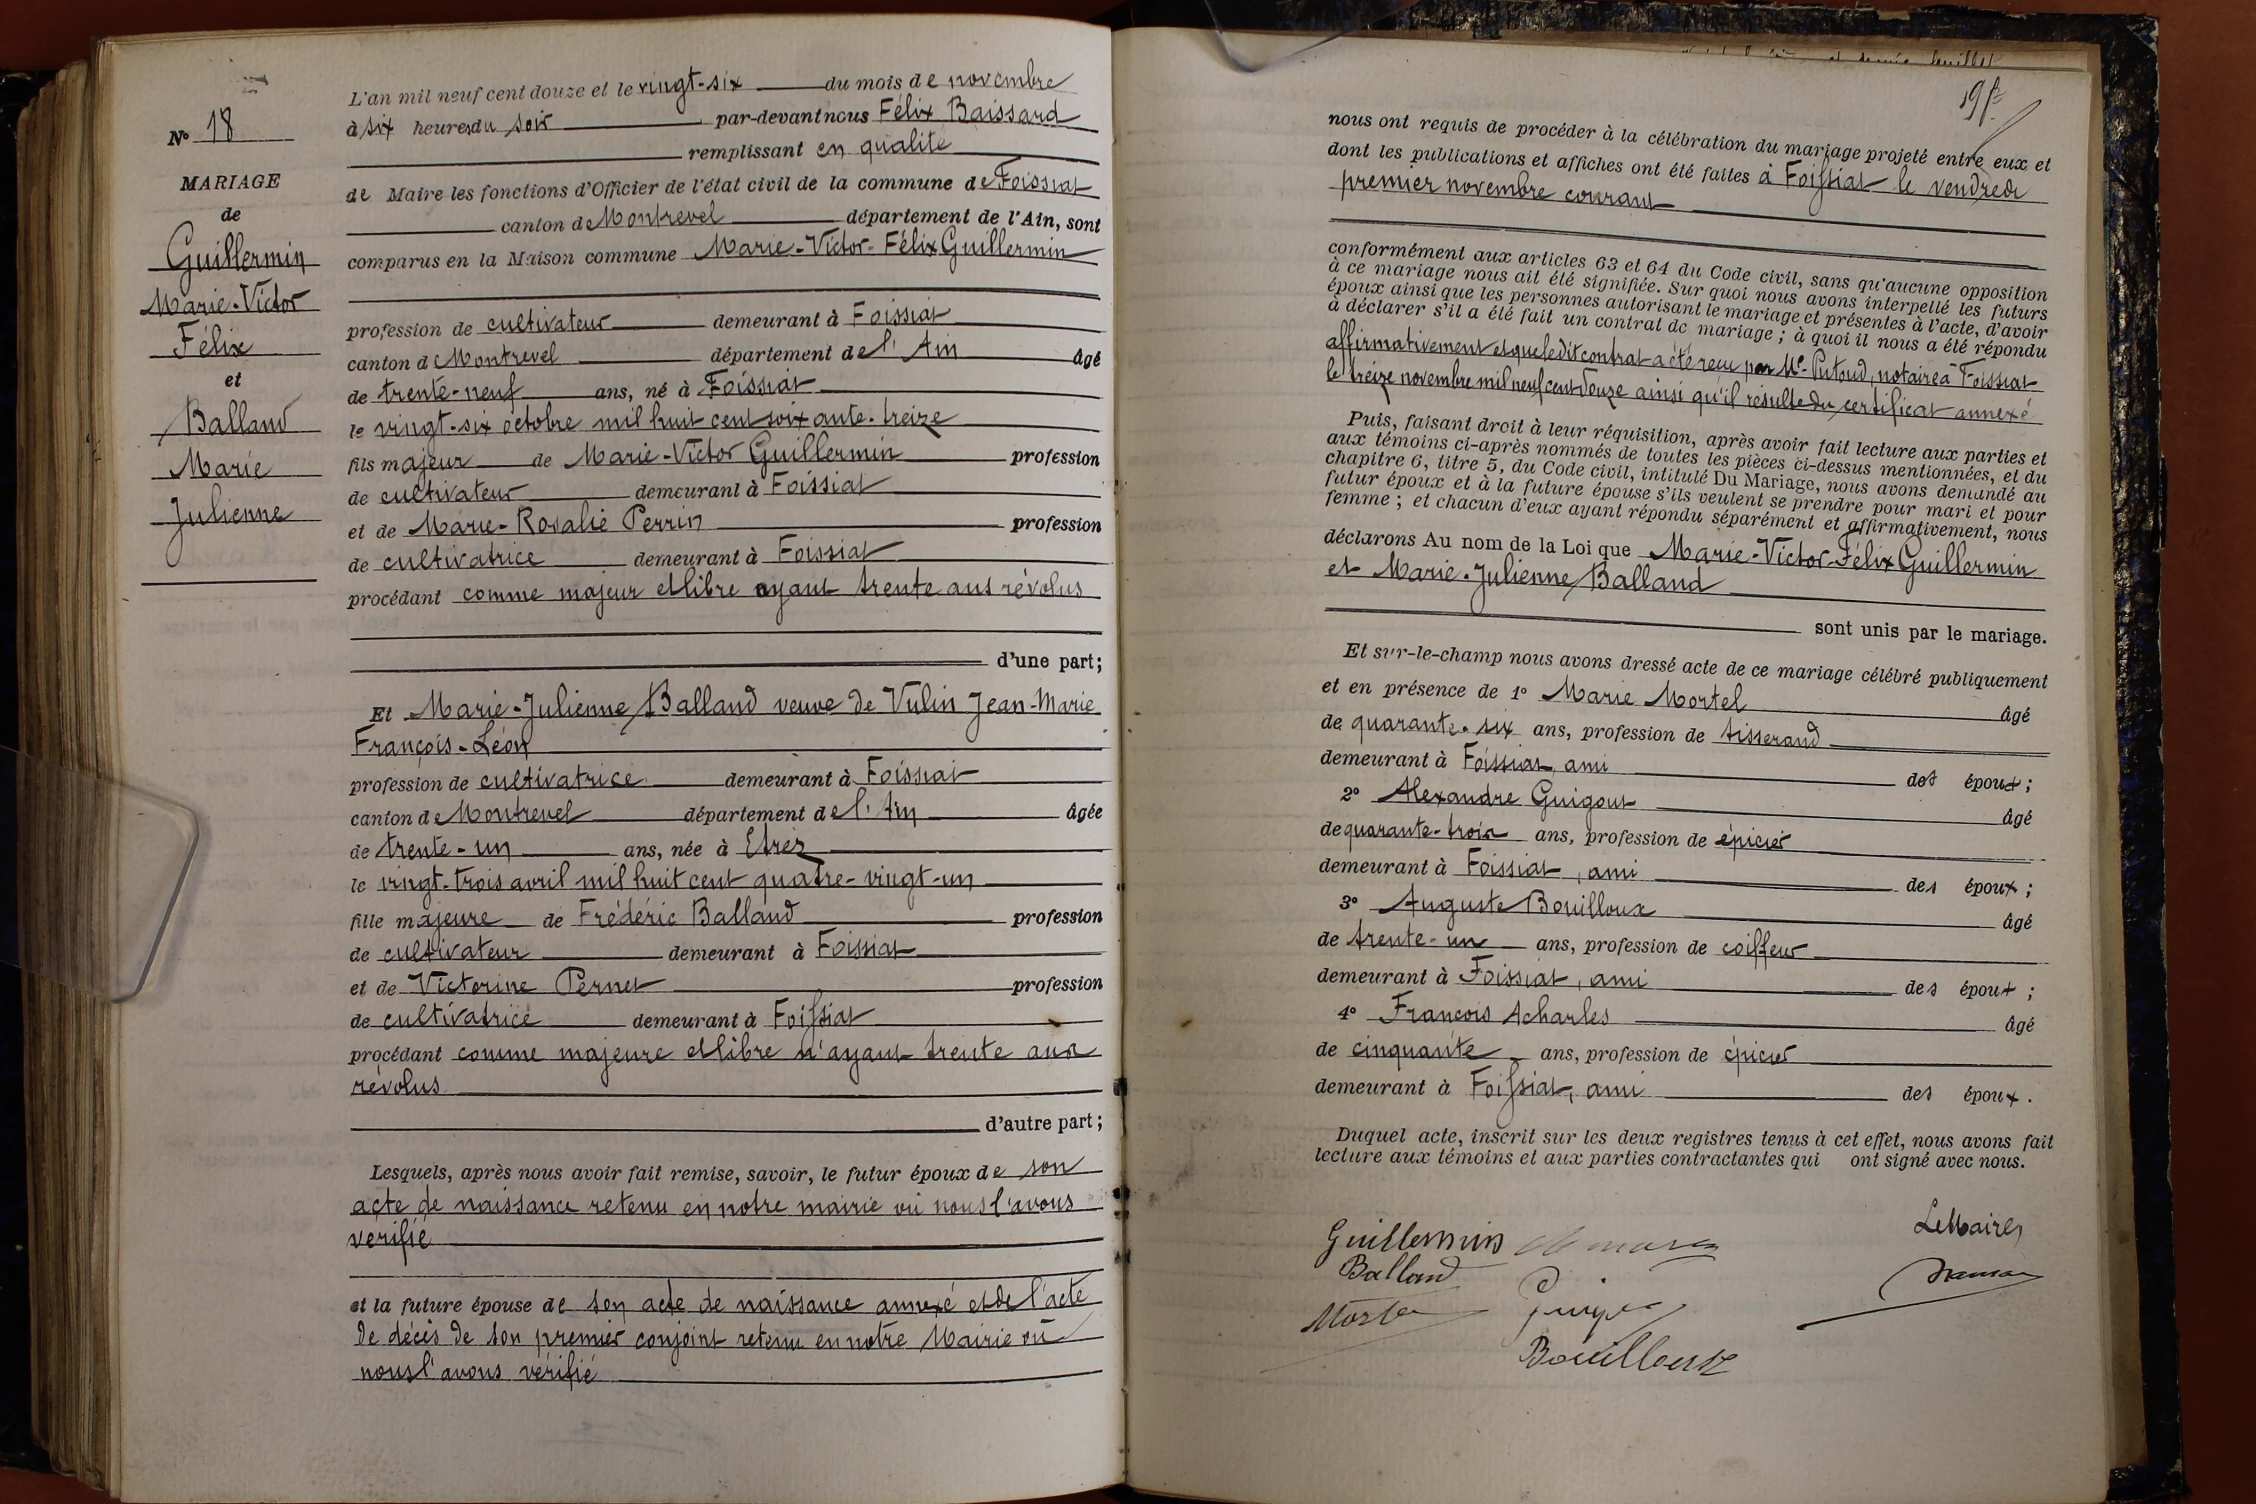 N° 18
MARIAGE
de
Guillermin
Marie-Victor
Félix
et
Balland
Marie
Julienne
L'an mil neuf cent douze et le vingt-six du mois de novembre
à six heures du soir par-devant nous Félix Baissard
remplissant en qualité
de Maire les fonctions d'Officier de l'état civil de la commune de Foissiat
canton de Montrevel département de l'Ain, sont
comparus en la Maison commune Marie-Victor-Félix Guillermin
profession de cultivateur demeurant à Foissiat
canton de Montrevel département de l'Ain âgé
de trente-neuf ans, né à Foissiat
le vingt-six octobre mil huit cent soixante-treize
fils majeur de Marie-Victor Guillermin profession
de cultivateur demeurant à Foissiat
et de Marie-Rosalie Perrin profession
de cultivatrice demeurant à Foissiat
procédant comme majeur et libre ayant trente ans révolus
d'une part;
Et Marie-Julienne Balland veuve de Vulin Jean-Marie
François-Léon
profession de cultivatrice demeurant à Foissiat
canton de Montrevel département de l'Ain âgée
de trente-un ans, née à Etrez
le vingt-trois avril mil huit cent quatre-vingt-un
fille majeure de Frédéric Balland profession
de cultivateur demeurant à Foissiat
et de Victorine Pernet profession
de cultivatrice demeurant à Foissiat
procédant comme majeure et libre n'ayant trente ans
révolus
d'autre part;
Lesquels, après nous avoir fait remise, savoir, le futur époux de son
acte de naissance retenu en notre mairie où nous l'avons
vérifié
et la future épouse de son acte de naissance annexé et de l'acte
de décès de son premier conjoint retenu en notre Mairie où
nous l'avons vérifié
nous ont requis de procéder à la célébration du mariage projeté entre eux et
dont les publications et affiches ont été faites à Foissiat le vendredi
premier novembre courant
conformément aux articles 63 et 64 du Code civil, sans qu'aucune opposition
à ce mariage nous ait été signifiée. Sur quoi nous avons interpellé les futurs
époux ainsi que les personnes autorisant le mariage et présentes à l'acte, d'avoir
à déclarer s'il a été fait un contrat de mariage; à quoi il nous a été répondu
affirmativement et que ledit contrat a été reçu par Me Putoud, notaire à Foissiat
le treize novembre mil neuf cent douze ainsi qu'il résulte du certificat annexé
Puis, faisant droit à leur réquisition, après avoir fait lecture aux parties et
aux témoins ci-après nommés de toutes les pièces ci-dessus mentionnées, et du
chapitre 6, titre 5, du Code civil, intitulé Du Mariage, nous avons demandé au
futur époux et à la future épouse s'ils veulent se prendre pour mari et pour
femme; et chacun d'eux ayant répondu séparément et affirmativement, nous
déclarons Au nom de la Loi que Marie-Victor-Félix Guillermin
et Marie-Julienne Balland
sont unis par le mariage.
Et sur-le-champ nous avons dressé acte de ce mariage célébré publiquement
et en présence de 1° Marie Mortel âgé
de quarante-six ans, profession de tisserand
demeurant à Foissiat, ami des époux;
2° Alexandre Guigout âgé
de quarante-trois ans, profession de épicier
demeurant à Foissiat, ami des époux;
3° Auguste Bouilloux âgé
de trente-un ans, profession de coiffeur
demeurant à Foissiat, ami des époux;
4° François Acharles âgé
de cinquante ans, profession de épicier
demeurant à Foissiat, ami des époux.
Duquel acte, inscrit sur les deux registres tenus à cet effet, nous avons fait
lecture aux témoins et aux parties contractantes qui ont signé avec nous.
Guillermin
Le Maire,
Balland
Bouilloux